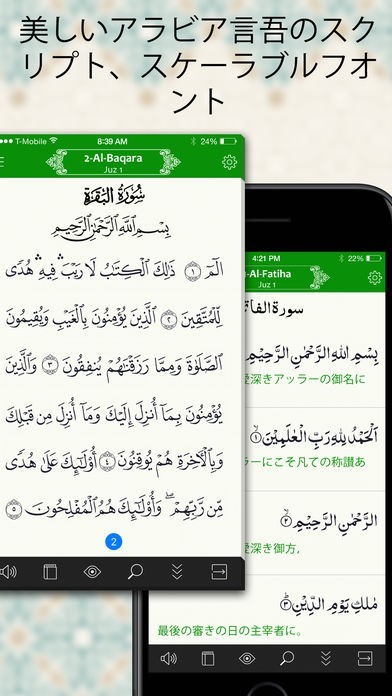 美しいアラビア言吾のスク
リプト、スケーラブルフオ
ント
T-Mobile 8:39 AM 24%
2-Al-Baqara
Juz 1
سُورَةُ البَقَرَةِ
بِسْمِ اللَّهِ الرَّحْمَٰنِ الرَّحِيمِ
الٓمٓ ١ ذَٰلِكَ الْكِتَابُ لَا رَيْبَ ۛ فِيهِ ۛ هُدًى
لِّلْمُتَّقِينَ ٢ الَّذِينَ يُؤْمِنُونَ بِالْغَيْبِ وَيُقِيمُونَ
الصَّلَاةَ وَمِمَّا رَزَقْنَاهُمْ يُنفِقُونَ ٣ وَالَّذِينَ
يُؤْمِنُونَ بِمَا أُنزِلَ إِلَيْكَ وَمَا أُنزِلَ مِن قَبْلِكَ
وَبِالْآخِرَةِ هُمْ يُوقِنُونَ ٤ أُولَٰئِكَ عَلَىٰ هُدًى
مِّن رَّبِّهِمْ ۖ وَأُولَٰئِكَ هُمُ الْمُفْلِحُونَ ٥
2
4:21 PM 22%
Al-Fatiha
Juz 1
سورة الفات
بِسْمِ اللهِ الرَّحْمٰنِ الرَّحِيْمِ
愛深きアッラーの御名に
اَلْحَمْدُ لِلّٰهِ رَبِّ الْعٰلَمِيْنَ ١
ラーにこそ凡ての称讃あ
الرَّحْمٰنِ الرَّحِيْمِ ٢
愛深き御方,
مٰلِكِ يَوْمِ الدِّيْنِ ٣
最後の審きの日の主宰者に。